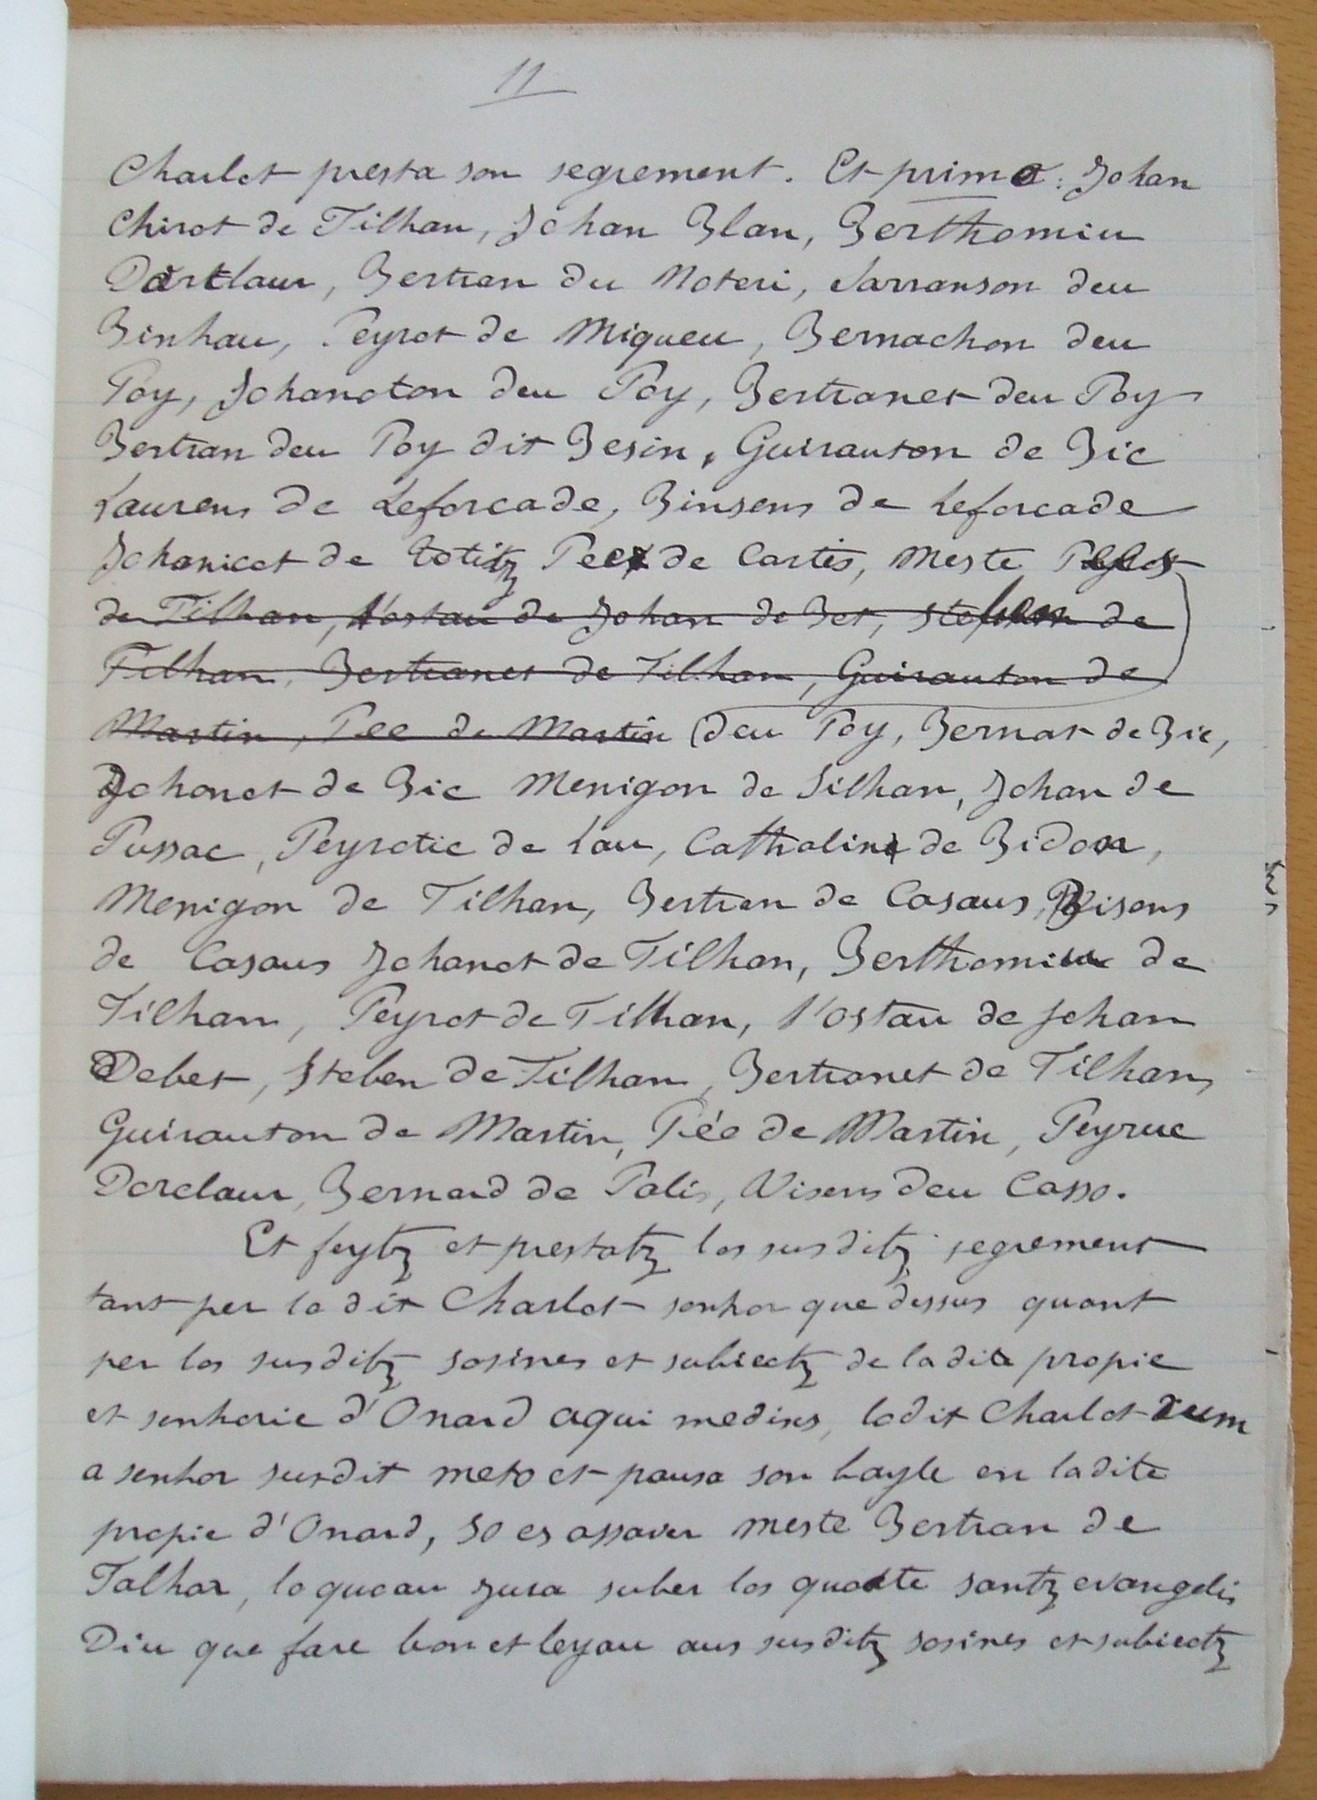 11
Charlot presta son segrement. Et primo: Johan
Chirot de Tilhan, Johan Blan, Berthomiu
Dortlaur, Bertran du Noteri, Sarranson deu
Binhau, Peyrot de Miqueu, Bernachon deu
Poy, Johanoton deu Poy, Bertranet deu Poy
Bertran deu Poy dit Besin, Guirauton de Bic
Laurens de Leforcade, Binsens de Leforcade
Johanicot de Totitz Pee de Cartés, Meste
de Tilhan, l'ostau de Johan de Bet, Steben de
Tilhan, Bertranet de Tilhan, Guirauton de
Martin, Pee de Martin (deu Poy, Bernat de Bic,
Johanot de Bic Menigon de Silhan, Johan de
Pussac, Peyrotic de Lau, Cathaline de Bidon,
Menigon de Tilhan, Bertran de Casaus, Bisens
de Casaus Johanot de Tilhan, Berthomiu de
Tilhan, Peyrot de Tilhan, l'ostau de Johan
Debet, Steben de Tilhan, Bertranet de Tilhan,
Guirauton de Martin, Pée de Martin, Peyruc
Dorclaur, Bernard de Palis, Visens deu Casso.
Et feytz et prestatz los susditz segrement
tant per lo dit Charlot senhor que dessus quant
per los susditz sosines et subiectz de ladite propie
et senhorie d'Onard aqui medixs, lodit Charlot cum
a senhor susdit meto et pausa son bayle en ladite
propie d'Onard, so es assaver meste Bertran de
Talhar, lo quoau jura suber los quoate santz evangelis
Diu que fare bon et leyau aus susditz sosines et subiectz